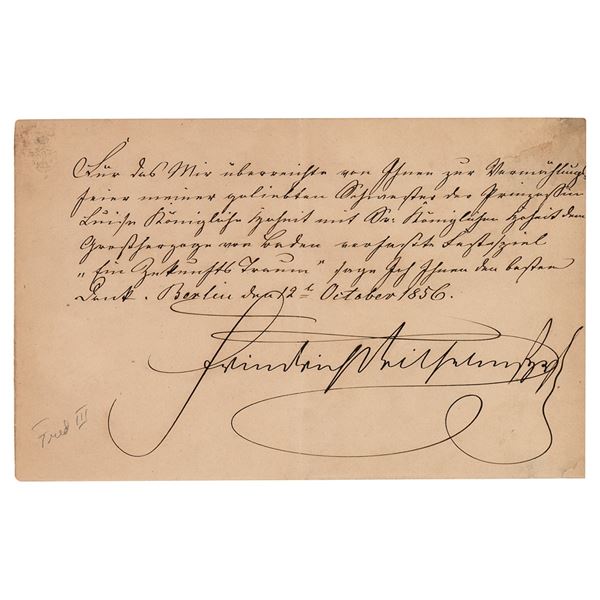 Für das Mir überreichte von Ihnen zur Vermählungs-
feier meiner geliebten Schwester der Prinzessin
Luise Königliche Hoheit mit Sr: Königlichen Hoheit dem
Großherzoge von Baden verfaßte Festspiel
„Ein Zukunfts Traum" sage Ich Ihnen den besten
Dank. Berlin den 12t October 1856.
Friedrich Wilhelm
Fred III